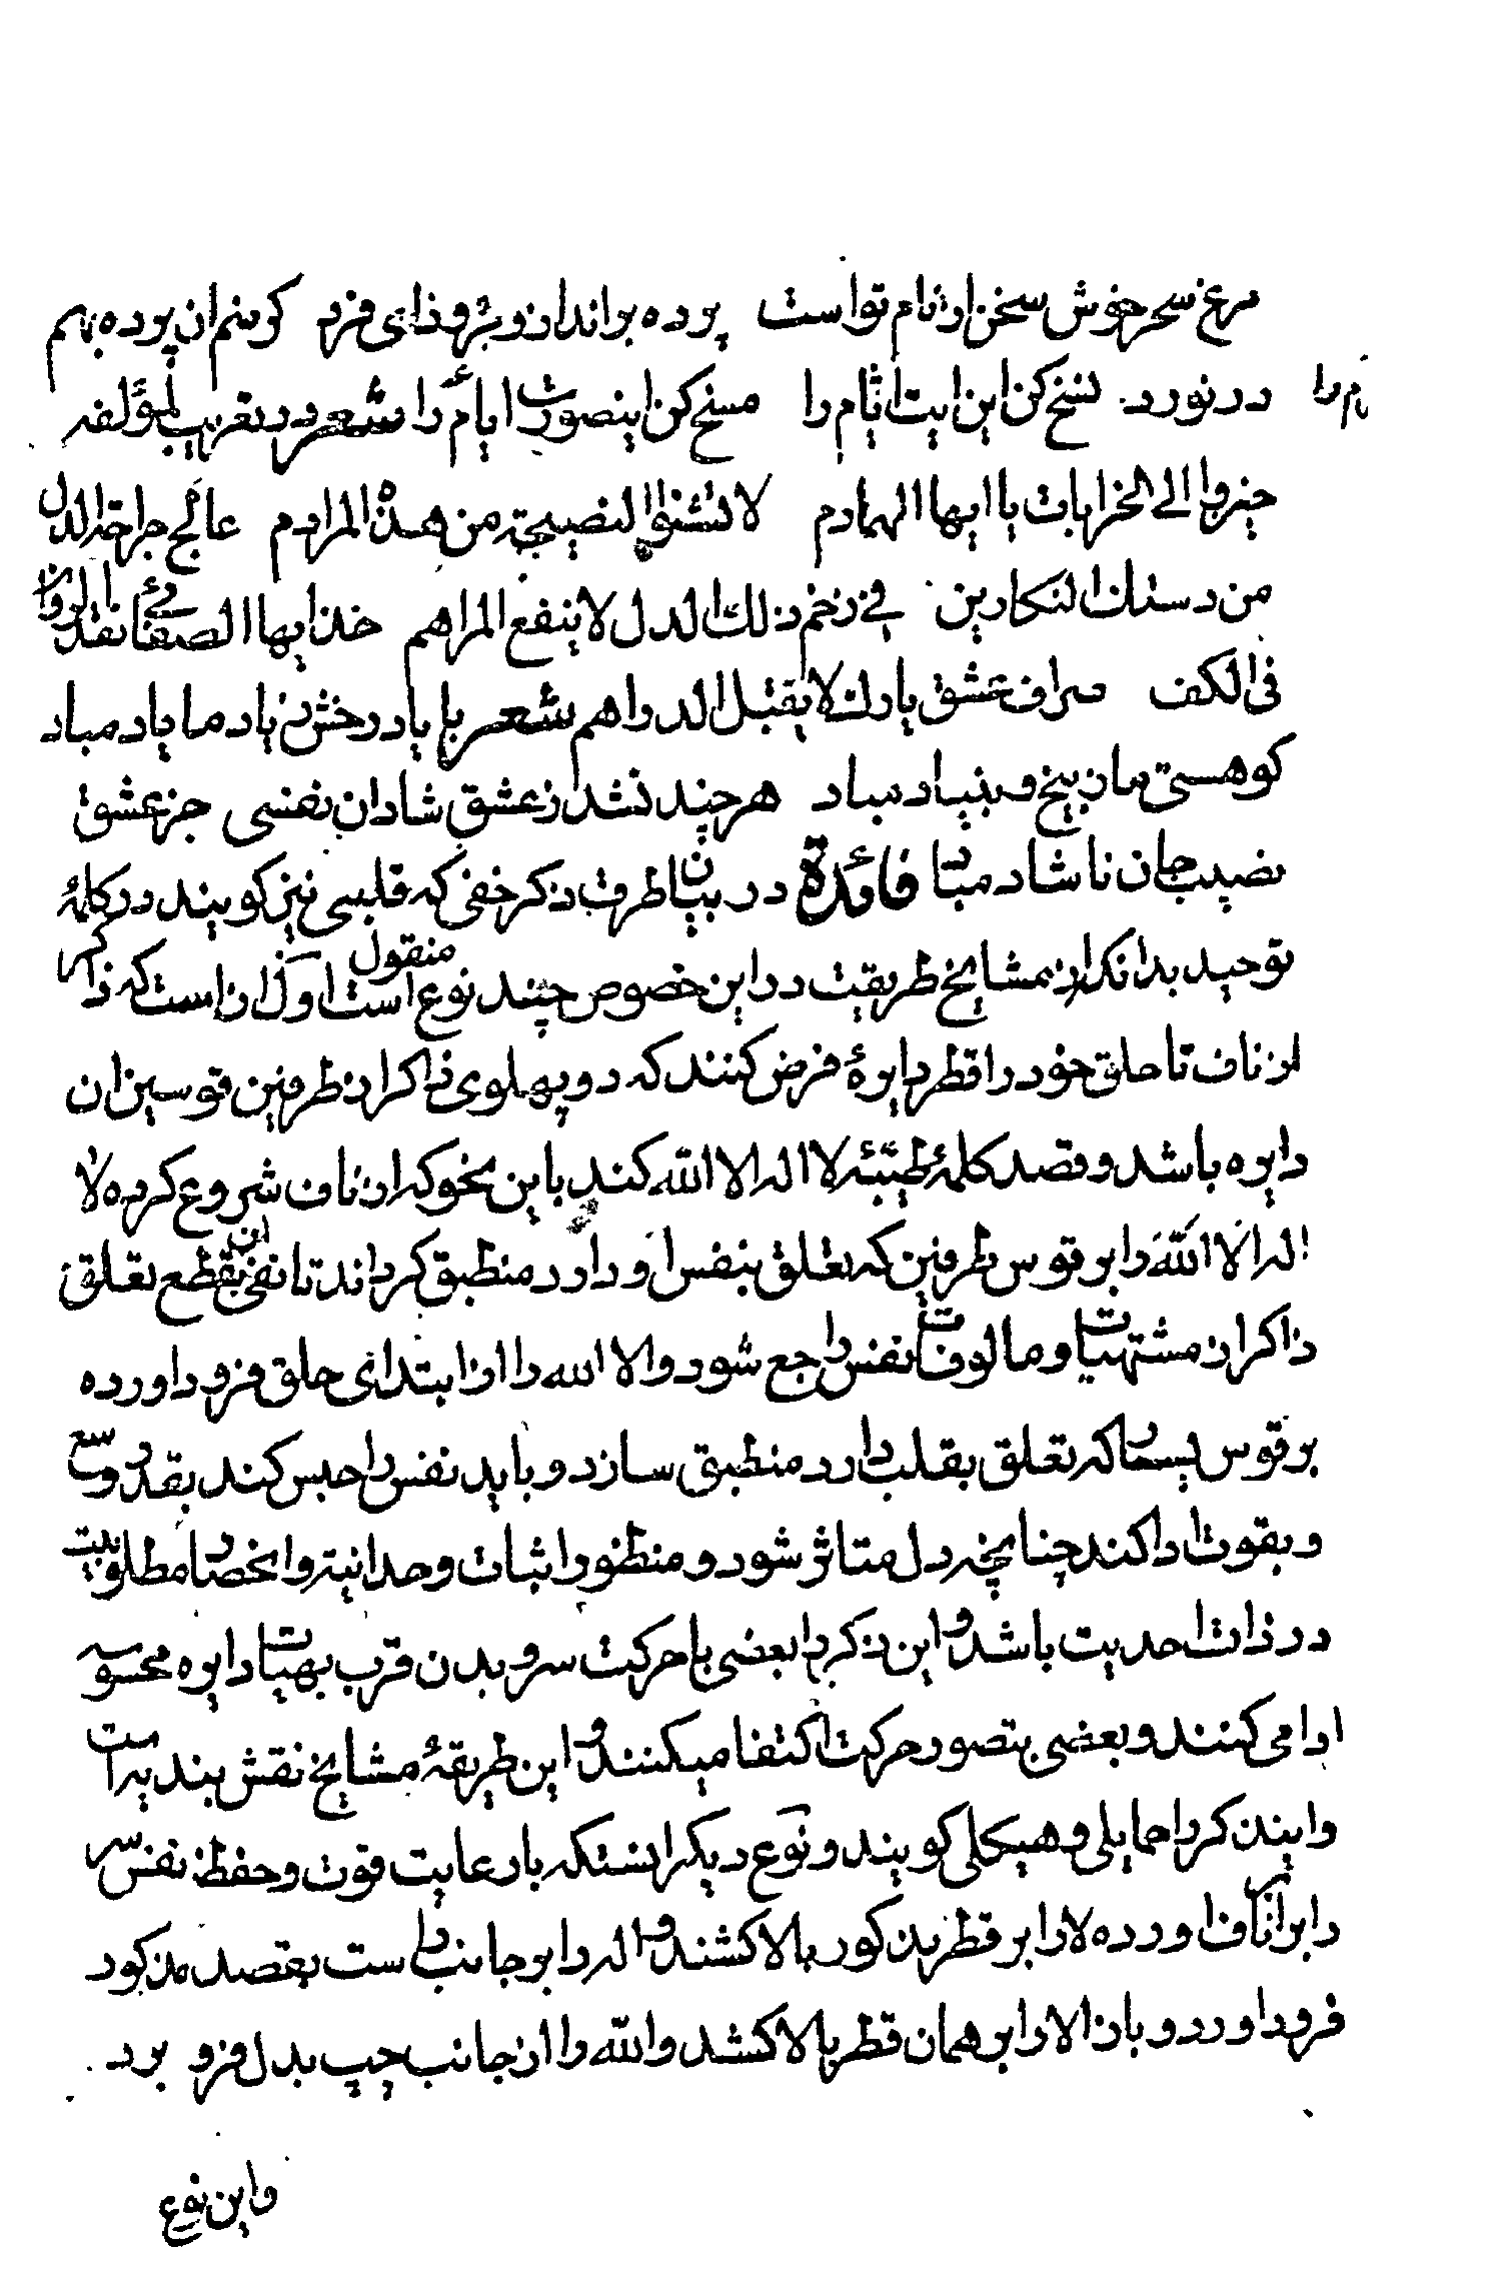 مرغ سحر خوش سخن از نام تو است پرده برانداز و برو ذای فرد کوسم ان پرده بهم
در نورد نسخ کن این ایت ایام را مسخ کن اینصورت ایام را شعر در تعریب لمؤلفه
ام را
خیزوا الی الخرابات یا ایها الهمادم لا تشنوا النصیحة من هذه المرادم عالج جراحة الدل
من دستك النکارین فی زخم ذلك الدل لا ینفع المراهم خذ ایها الصفائی نقد الروان
فی الکف صراف عشق یارك لا یقبل الدراهم شعر با یاد رخش ز یاد ما یاد مباد
کو هستی مان بیخ و بنیاد مباد هر چند نشد ز عشق شادان نفسی جز عشق
نصیب جان ناشاد مباد فائدة در بیان طرق ذکر خفی که قلبی نیز کویند در کلمهٔ
توحید بدانکه از مشایخ طریقت در این خصوص چند نوع منقول است اول ان است که ذاکر
از ناف تا حلق خود را قطر دایرهٔ فرض کنند که دو پهلوی ذاکر از طرفین قوسین ان
دایره باشد و قصد کلمهٔ طیبهٔ لا اله الا الله کند باین نحو که از ناف شروع کرده لا
اله الا الله را بر قوس طرفین که تعلق بنفس او دارد منطبق کرداند تا نفی ان بقطع تعلق
ذاکر از مشتهیات و مالوفات نفس راجع شود و الا الله را از ابتدای حلق فرود اورده
بر قوس یسار که تعلق بقلب دارد منطبق سازد و باید نفس را حبس کند بقدر وسع
و بقوت ادا کند چنانچه دل متاثر شود و منظور اثبات وحدانیته و انحصار مطلوبیت
در ذات احدیت باشد و این ذکر را بعضی با حرکت سر و بدن قرب بهیات دایره محسوسه
ادا می کنند و بعضی بتصور حرکت اکتفا میکنند و این طریقهٔ مشایخ نقش بندیه است
و اینذکر را حمایلی و هیکلی کویند و نوع دیکر انستکه با رعایت قوت و حفظ نفس سر
را برابر ناف اورده لا را بر قطر مذکور بالا کشند و اله را بر جانب راست بقصد مذکور
فرود اورد و باز الا را بر همان قطر بالا کشد و الله را از جانب چپ بدل فرو برد
و این نوع